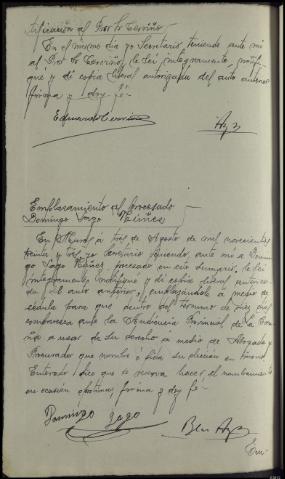 tificación al Por to Cerviño
En el mismo dia yo Secretario teniendo ante mi
al Cerviño, le leí integramente, notifi-
qué y di copia literal autorizada del auto anterior
firma y doy fé
Eduardo Cerviño
Emplazamiento al procesado
Domingo Lago Núñez
En á tres de Agosto de mil novecientos
treinta y tres yo Secretario teniendo ante mi a Domin-
go Lago Núñez, procesado en este sumario, le leí
integramente, notifiqué y di copia literal autoriza-
da del auto anterior, emplazándole á medio de
cédula para que dentro del termino de diez dias
comparezca ante la Audiencia Provincial de la Coru-
ña a usar de su derecho a medio de Abogado y
Procurador que nombre o pida su eleccion en turno.
Enterado, dice que se reserva hacer el nombramiento
en ocasión oportuna, firma y doy fé
Domingo Lago